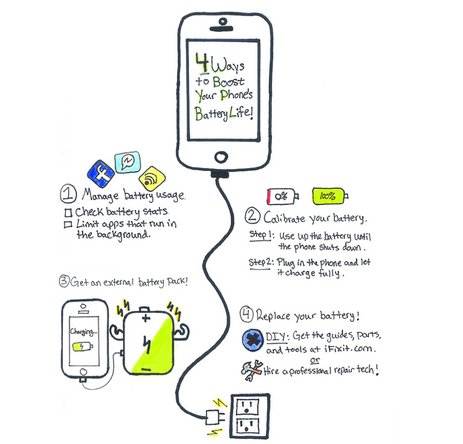 4 Ways
to Boost
Your Phone's
Battery Life!
① Manage battery usage.
Check battery stats
Limit apps that run in
the background.
0%
100%
② Calibrate your battery.
Step 1: Use up the battery until
the phone shuts down.
Step 2: Plug in the phone and let
it charge fully.
③ Get an external battery pack!
Charging...
④ Replace your battery!
DIY: Get the guides, parts,
and tools at iFixit.com.
or
Hire a professional repair tech!